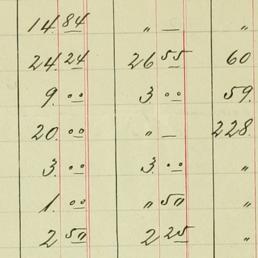 14. 84 " — "
24. 24 26 55 60
9. 00 3. 00 59.
20. 00 " — 228.
3. 00 3. 00 "
1. 00 " 50 "
2 50 2 25 "